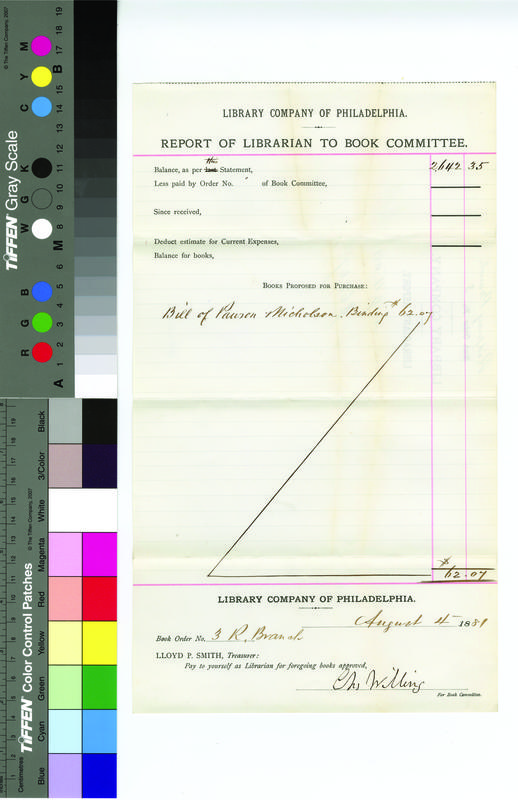 LIBRARY COMPANY OF PHILADELPHIA.
REPORT OF LIBRARIAN TO BOOK COMMITTEE.
this
Balance, as per last Statement, 2,642 35
Less paid by Order No. of Book Committee,
Since received,
Deduct estimate for Current Expenses,
Balance for books,
BOOKS PROPOSED FOR PURCHASE:
Bill of Pawson Nicholson. Binding $62.07
$
62.07
LIBRARY COMPANY OF PHILADELPHIA.
August 4 1881
Book Order No. 3 R. Branch
LLOYD P. SMITH, Treasurer:
Pay to yourself as Librarian for foregoing books approved,
Chs Willing
For Book Committee.
TIFFEN Gray Scale
© The Tiffen Company, 2007
R G B W G K C Y M
A 1 2 3 4 5 6 M 8 9 10 11 12 13 14 15 B 17 18 19
TIFFEN Color Control Patches
© The Tiffen Company, 2007
Blue Cyan Green Yellow Red Magenta White 3/Color Black
Centimetres